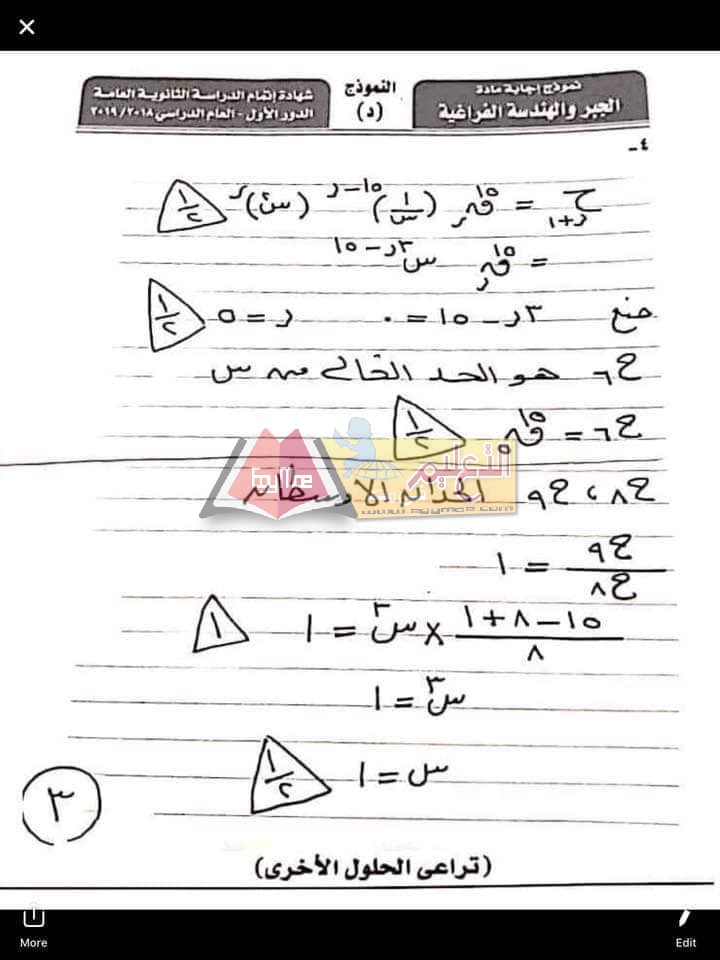 نموذج إجابة مادة
الجبر والهندسة الفراغية
النموذج
(د)
شهادة إتمام الدراسة الثانوية العامة
الدور الأول - العام الدراسي ٢٠١٩/٢٠١٨
٤-
ح ر+١ = ١٥ق ر (١/س)^١٥-ر (س٢)^ر ١/٢
= ١٥ق ر س^٣ر-١٥
ضع ٣ر - ١٥ = ٠ ر = ٥ ١/٢
ح٦ هو الحد الخالى من س
ح٦ = ١٥ق٥ ١/٢
ح٨ ، ح٩ الحدان الأوسطان
التعليم
www.egymoe.com
ح٩/ح٨ = ١
(١٥ - ٨ + ١)/٨ × س٣ = ١ ١
س٣ = ١
س = ١ ١/٢
٣
(تراعى الحلول الأخرى)
More
Edit